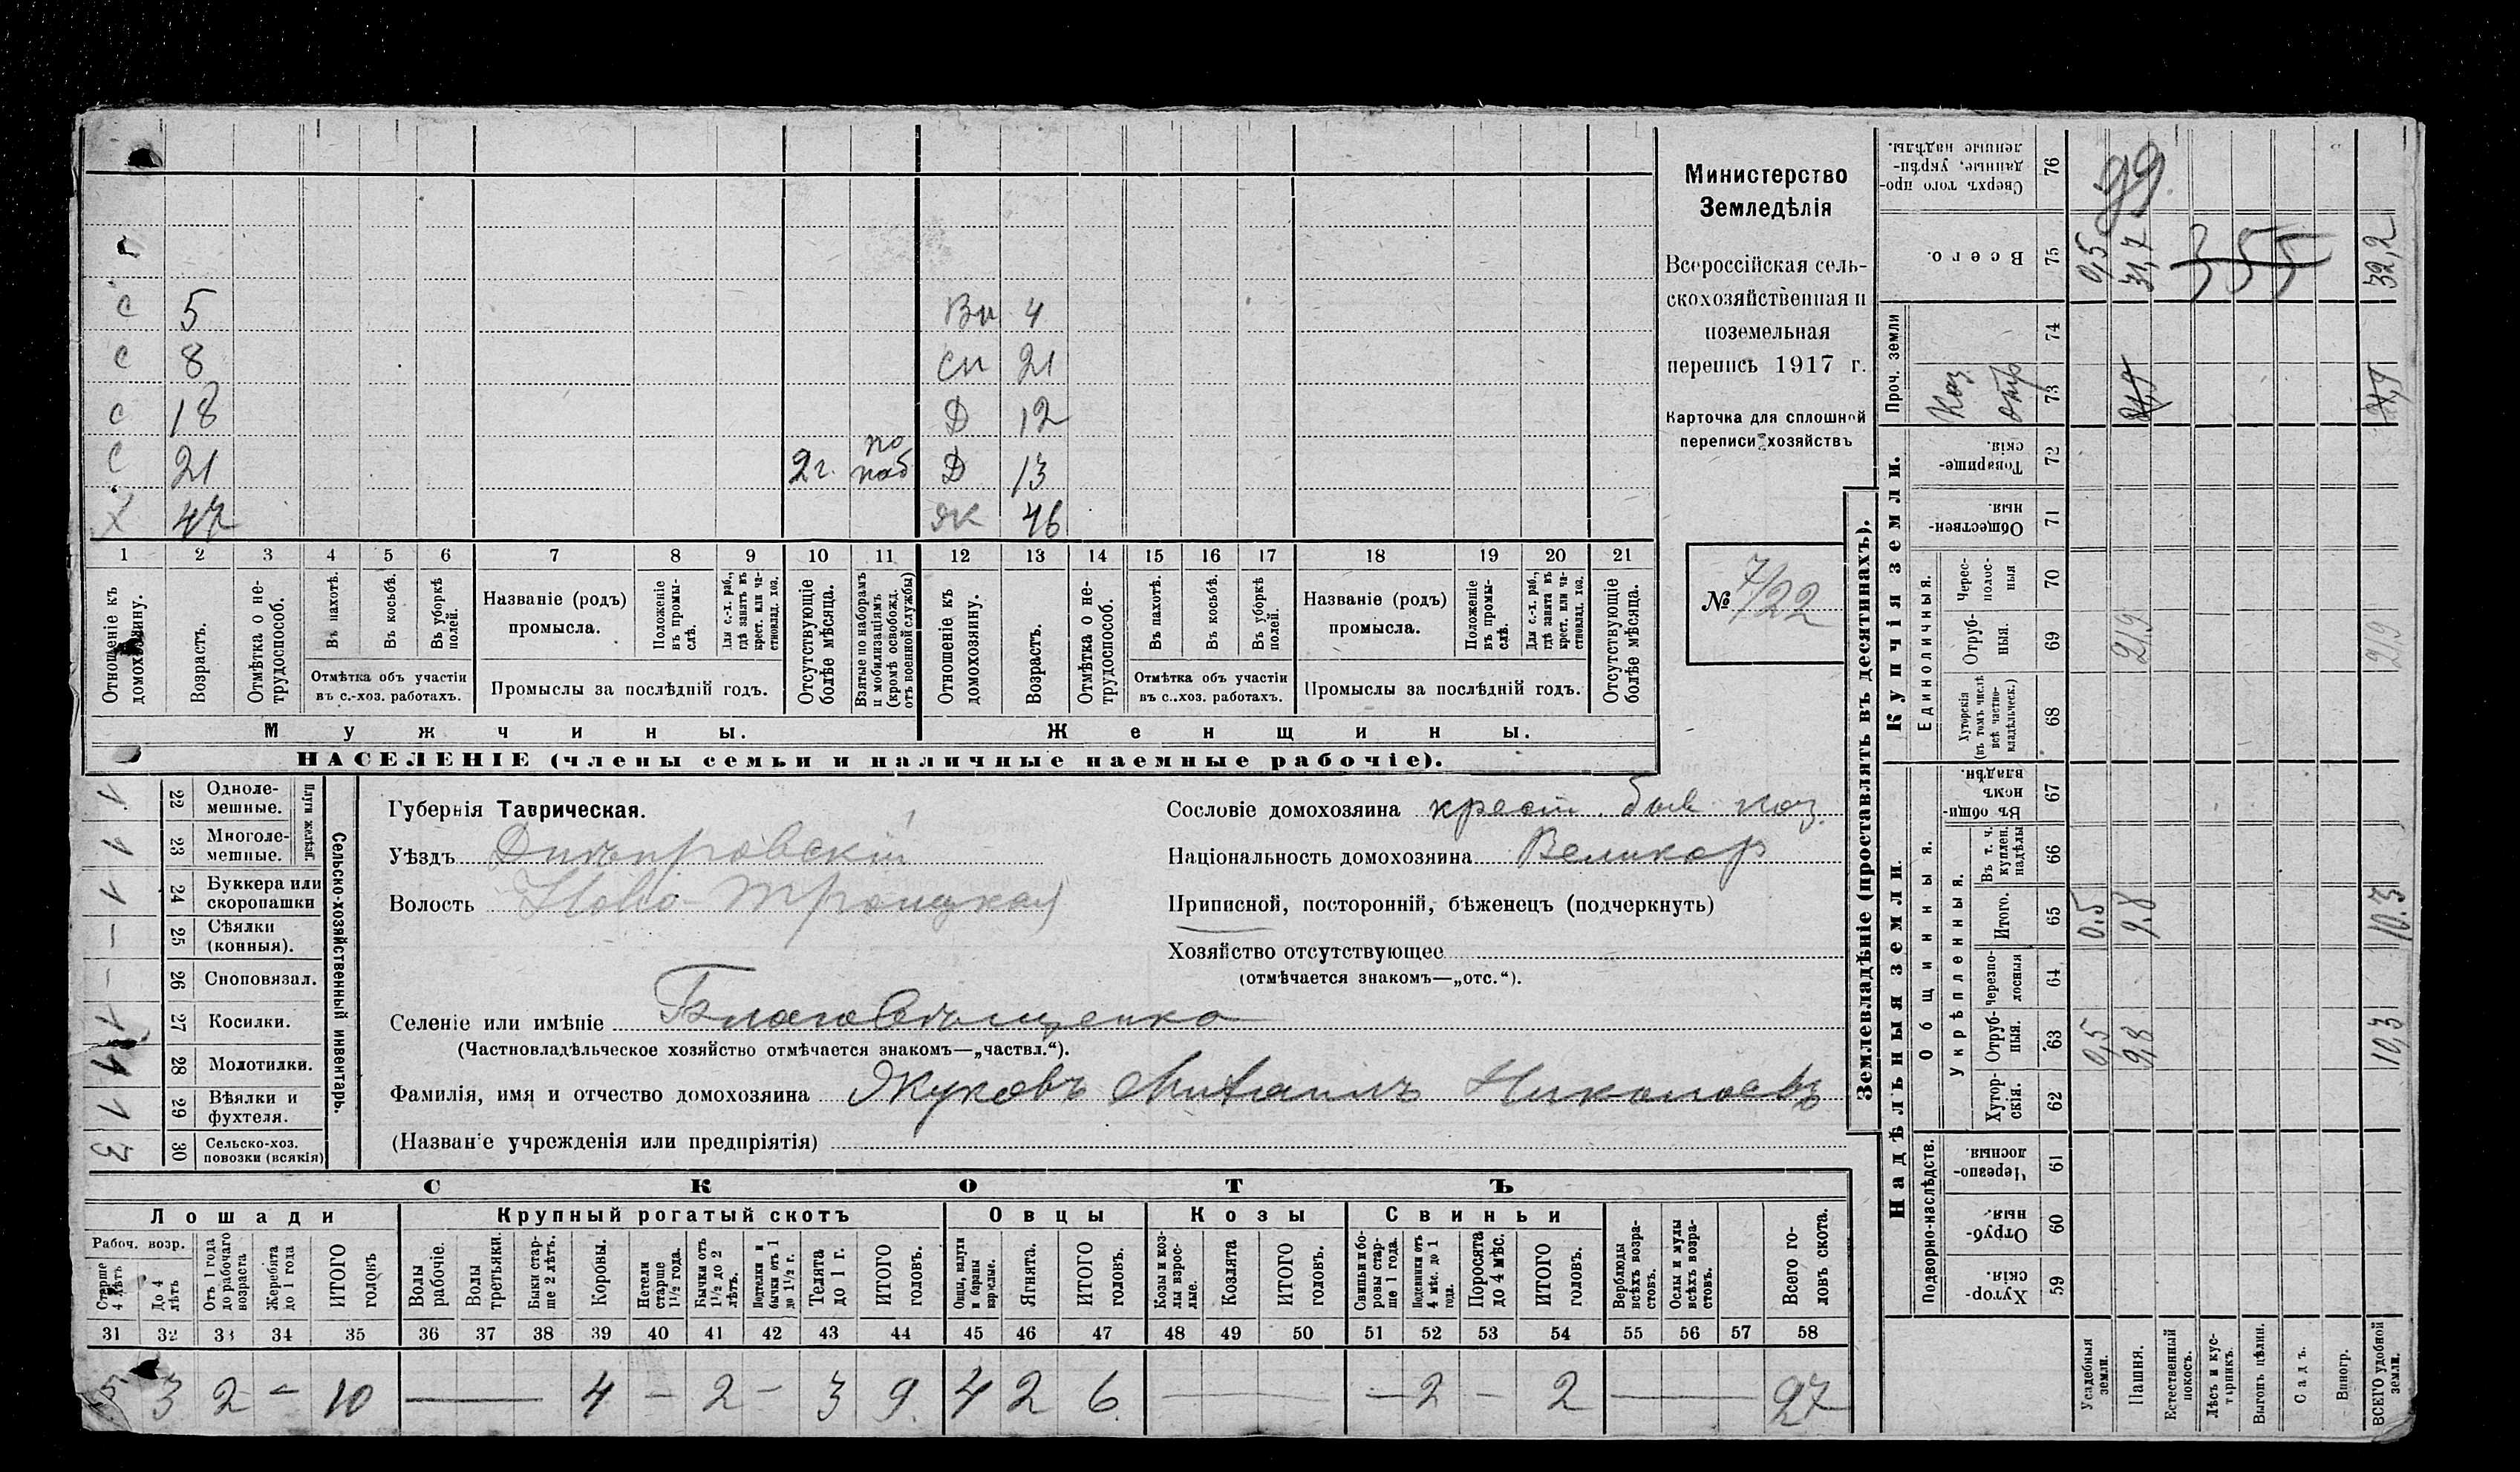 Министерство
Земледѣлія
Всероссійская сель-
скохозяйственная и
поземельная
перепись 1917 г.
Карточка для сплошной
переписи хозяйствъ
№ 7/22
с 5 Вн 4
с 8 Сн 21
с 18 Д 12
с 21 2 г. по наб Д 13
Х 47 як 46
1 2 3 4 5 6 7 8 9 10 11 12 13 14 15 16 17 18 19 20 21
Отношеніе къ домохозяину.
Возрастъ.
Отмѣтка о не-трудоспособ.
Въ пахотѣ.
Въ косьбѣ.
Въ уборкѣ полей.
Отмѣтка объ участіи
въ с.-хоз. работахъ.
Названіе (родъ)
промысла.
Положеніе въ промы-слѣ.
Для с.-х. раб., гдѣ занятъ въ крест. или ча-стновлад. хоз.
Промыслы за послѣдній годъ.
Отсутствующіе болѣе мѣсяца.
Взятые по наборамъ и мобилизаціямъ (кромѣ освобожд. отъ военной службы)
Отношеніе къ домохозяину.
Возрастъ.
Отмѣтка о не-трудоспособ.
Въ пахотѣ.
Въ косьбѣ.
Въ уборкѣ полей.
Отмѣтка объ участіи
въ с..хоз. работахъ.
Названіе (родъ)
промысла.
Положеніе въ промы-слѣ.
Для с.-х. раб., гдѣ занята въ крест. или ча-стновлад. хоз.
Промыслы за послѣдній годъ.
Отсутствующіе болѣе мѣсяца.
Мужчины. Женщины.
НАСЕЛЕНІЕ (члены семьи и наличные наемные рабочіе).
Сельско-хозяйственный инвентарь.
Плуги желѣз.
1 22 Одноле-мешные.
1 23 Многоле-мешные.
1 24 Буккера или скоропашки
— 25 Сѣялки (конныя).
— 26 Сноповязал.
1 27 Косилки.
1 28 Молотилки.
1 29 Вѣялки и фухтеля.
3 30 Сельско-хоз. повозки (всякія)
Губернія Таврическая.
Уѣздъ Днѣпровскій
Волость Ново-Троицкая
Сословіе домохозяина крест. быв каз.
Національность домохозяина Великор
Приписной, посторонній, бѣженецъ (подчеркнуть)
Хозяйство отсутствующее
(отмѣчается знакомъ—„отс.“).
Селеніе или имѣніе Благовѣщенко
(Частновладѣльческое хозяйство отмѣчается знакомъ—„частвл.“).
Фамилія, имя и отчество домохозяина Жуковъ Михаилъ Николаевъ
(Названіе учрежденія или предпріятія)
СКОТЪ
Лошади Крупный рогатый скотъ Овцы Козы Свиньи
Рабоч. возр.
Старше 4 лѣтъ
До 4 лѣтъ
Отъ 1 года до рабочаго возраста
Жеребята до 1 года
ИТОГО головъ
Волы рабочіе.
Волы третьяки.
Быки стар-ше 2 лѣтъ.
Коровы.
Нетели старше 1½ года.
Бычки отъ 1½ до 2 лѣтъ.
Подтелки и бычки отъ 1 до 1½ г.
Телята до 1 г.
ИТОГО головъ.
Овцы, валухи и бараны взрослые.
Ягнята.
ИТОГО головъ.
Козы и коз-лы взрос-лые.
Козлята
ИТОГО головъ.
Свиньи и бо-ровы стар-ше 1 года.
Подсвинки отъ 4 мѣс. до 1 года.
Поросята до 4 мѣс.
ИТОГО головъ.
Верблюды всѣхъ возра-стовъ.
Ослы и мулы всѣхъ возра-стовъ.
Всего го-ловъ скота.
31 32 33 34 35 36 37 38 39 40 41 42 43 44 45 46 47 48 49 50 51 52 53 54 55 56 57 58
5 3 2 — 10 — 4 — 2 — 3 9 4 2 6 — — 2 — 2 — 27
Землевладѣніе (проставлять въ десятинахъ).
Надѣльныя земли. Купчія земли. Проч. земли
Подворно-наслѣдств.
Общинныя.
Укрѣпленныя.
Единоличныя.
Сверхъ того про-данные, укрѣп-ленные надѣлы. 76 99
Всего. 75 0,5 31,7 355 32,2
74
Каз. отр 73 21,9 21,9
Товарище-скія. 72
Обществен-ныя. 71
Черес-полос-ныя 70
Отруб-ныя. 69 21,9 21,9
Хуторскія (въ томъ числѣ всѣ частно-владѣльческ.) 68
Въ общи-номъ владѣн. 67
Въ т. ч. куплен. надѣлы 66
Итого. 65 0.5 9.8 10.3
Черезпо-лосныя 64
Отруб-ныя. 63 0,5 9,8 10,3
Хутор-скія. 62
Черезпо-лосныя. 61
Отруб-ныя. 60
Хутор-скія. 59
Усадебныя земли.
Пашня.
Естественный покосъ.
Лѣсъ и кус-тарникъ.
Выгонъ цѣлин.
Садъ.
Виногр.
ВСЕГО удобной земли.